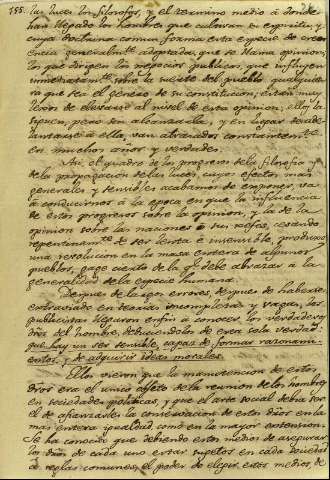 185. las luces, los filosofos, y el termino medio á donde
han llegado los hombres que cultivan su espiritu, y
cuya doctrina comun forma esta especie de creen
cia generalmte. adoptada, que se llama opinion;
los que dirigen los negocios publicos, que influyen
inmediatamte. sobre la suerte del pueblo, qualquie
ra que sea el genero de su constitucion, están muy
lexos de elevarse al nivel de esta opinion; ellos la
siguen, pero sin alcanzarla, y en lugar de ade-
lantarse á ella, van atrasados constantemte.
en muchos años y verdades.
Asi, el quadro de los progresos de la filosofia y
de la propagacion de las luces, cuyos efectos mas
generales y sensibles acabamos de exponer, va
á conducirnos á la epoca en que la influencia
de estos progresos sobre la opinion, y la de la
opinion sobre las naciones ó sus xefes, cesando
repentinamte. de ser lenta é insensible, produxo
una revolucion en la masa entera de algunos
pueblos, gage cierto de la qe. debe abrazar á la
generalidad de la especie humana.
Despues de largos errores, despues de haberse
extraviado en teorias incompletas y vagas, los
publicistas llegaron en fin á conocer los verdaderos
dros. del hombre, deduciendolos de esta sola verdad:
que hay un ser sensible, capaz de formar razonami-
entos, y de adquirir ideas morales.
Ellos vieron que la manutencion de estos
dros. era el unico objeto de la reunion de los hombres
en sociedades politicas, y que el arte social debia ser
el de afianzarles la conservacion de estos dros. en la
mas entera igualdad, como en la mayor extension.
Se ha conocido que debiendo estos medios de asegurar
los dros. de cada uno estar sugetos en cada sociedad
á reglas comunes, el poder de elegir estos medios, de